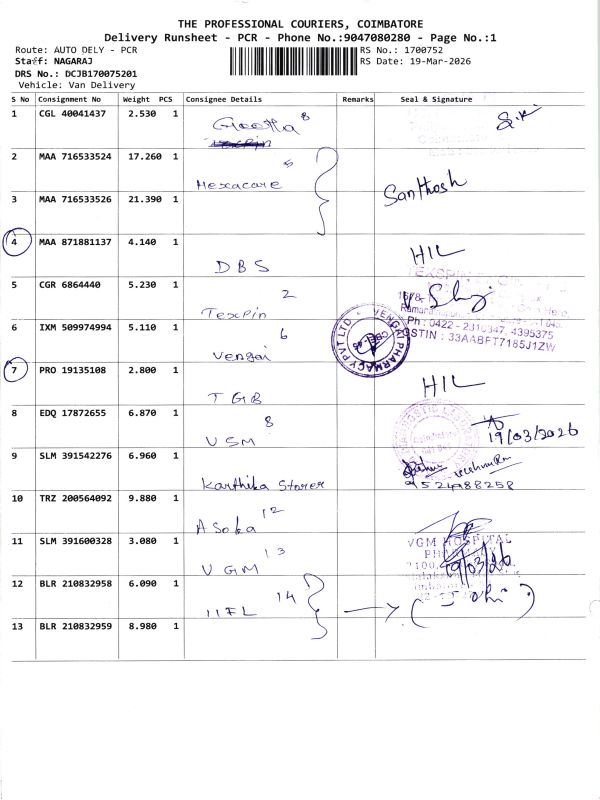 THE PROFESSIONAL COURIERS, COIMBATORE
Delivery Runsheet - PCR - Phone No.:9047080280 - Page No.:1
Route: AUTO DELY - PCR
RS No.: 1700752
Staff: NAGARAJ
RS Date: 19-Mar-2026
DRS No.: DCJB170075201
Vehicle: Van Delivery
S No Consignment No Weight PCS Consignee Details Remarks Seal & Signature
1 CGL 40041437 2.530 1 Geetha 8
Texpin
2 MAA 716533524 17.260 1 Hexacare 5
3 MAA 716533526 21.390 1 Santhosh
4 MAA 871881137 4.140 1 DBS HIL
5 CGR 6864440 5.230 1 Texpin 2
Ph : 0422 - 2316347, 4395375
GSTIN : 33AABFT7185J1ZW
6 IXM 509974994 5.110 1 Vengai 6
VENGAI PHARMACY PVT LTD
CBE-45
7 PRO 19135108 2.800 1 TGB HIL
8 EDQ 17872655 6.870 1 VSM 8
19/03/2026
9 SLM 391542276 6.960 1 Karthika Stores
9524988258
10 TRZ 200564092 9.880 1 Asoka 12
11 SLM 391600328 3.080 1 VGM 13
VGM HOSPITAL
19/03/26
12 BLR 210832958 6.090 1 IIFL 14
13 BLR 210832959 8.980 1